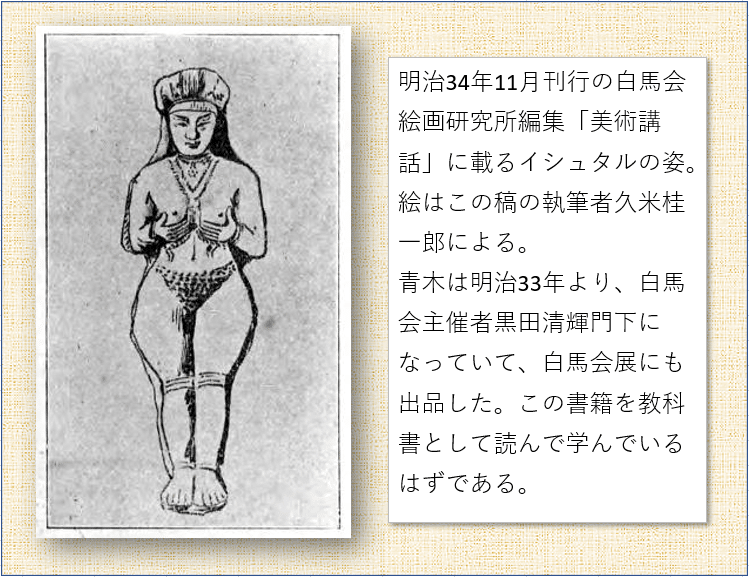 明治34年11月刊行の白馬会
絵画研究所編集「美術講
話」に載るイシュタルの姿。
絵はこの稿の執筆者久米桂
一郎による。
青木は明治33年より、白馬
会主催者黒田清輝門下に
なっていて、白馬会展にも
出品した。この書籍を教科
書として読んで学んでいる
はずである。